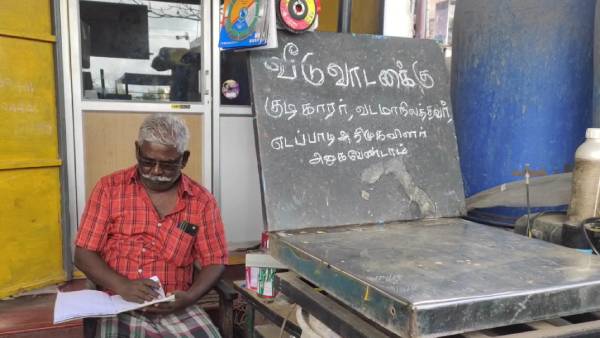 வீடு வாடகைக்கு
குடிகாரர், வடமாநிலத்தவர்,
எடப்பாடி அதிமுகவினர்
அணுகவேண்டாம்